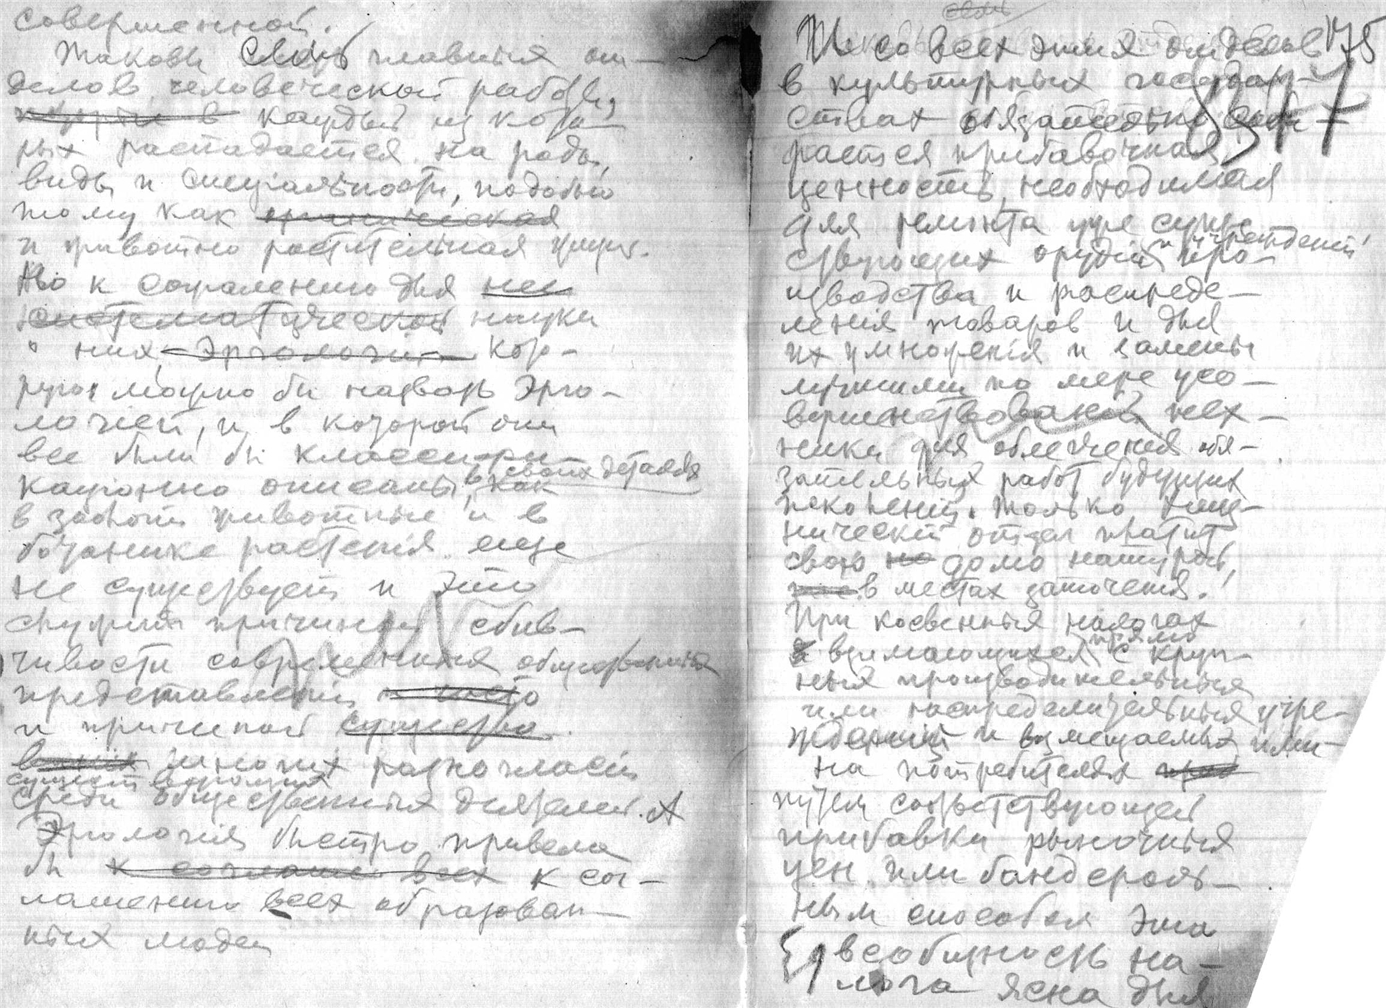 совершенной.
Таковы семь главных от-
делов человеческой работы,
в каждый из кото-
рых распадается на роды,
виды и специальности, подобно
тому как
и животно растительная
Но к сожалению для нее
систематической науки
о них Эргологии кор-
можно бы назвать Эрго-
логией, и в которой они
все были бы классифи-
кационно описаны в своих деталях как
в зоологии животные и в
ботанике растения еще
не существует и это
служит причиной сбив-
чивости современных общественных
представлений
и причиной существо
многих разногласий
среди общественных деятелей. А
Эргология быстро привела
бы к соглаше всех к сог-
лашению всех образован-
ных людей
175
8377
Же со всех этих отделов
в культурных государ-
ствах обязательно соби-
рается прибавочная
ценность, необходимая
для ремонта уже суще-
ствующих орудий и учреждений про-
изводства и распреде-
ления товаров и для
их умножения и замены
лучшими по мере усо-
вершенствований тех-
ники для облегчения обя-
зательных работ будущих
поколений. Только
нический отдел платит
свою натурой,
в местах заточения.
При косвенных налогах
взимающихся прямо с круп-
ных производительных
или распределительных учре-
ждений и возмещаемых ими
на потребителях
путем соответствующей
прибавки рыночных
цен или бандероль-
ным способом эта
всеобщность на-
лога ясна для